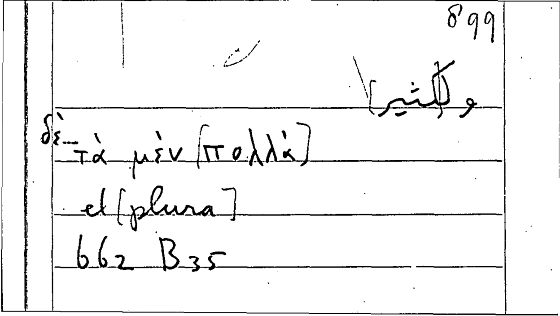 899
و [كثير]
δὲ
τὰ μὲν [πολλὰ]
et [plura]
662 B35